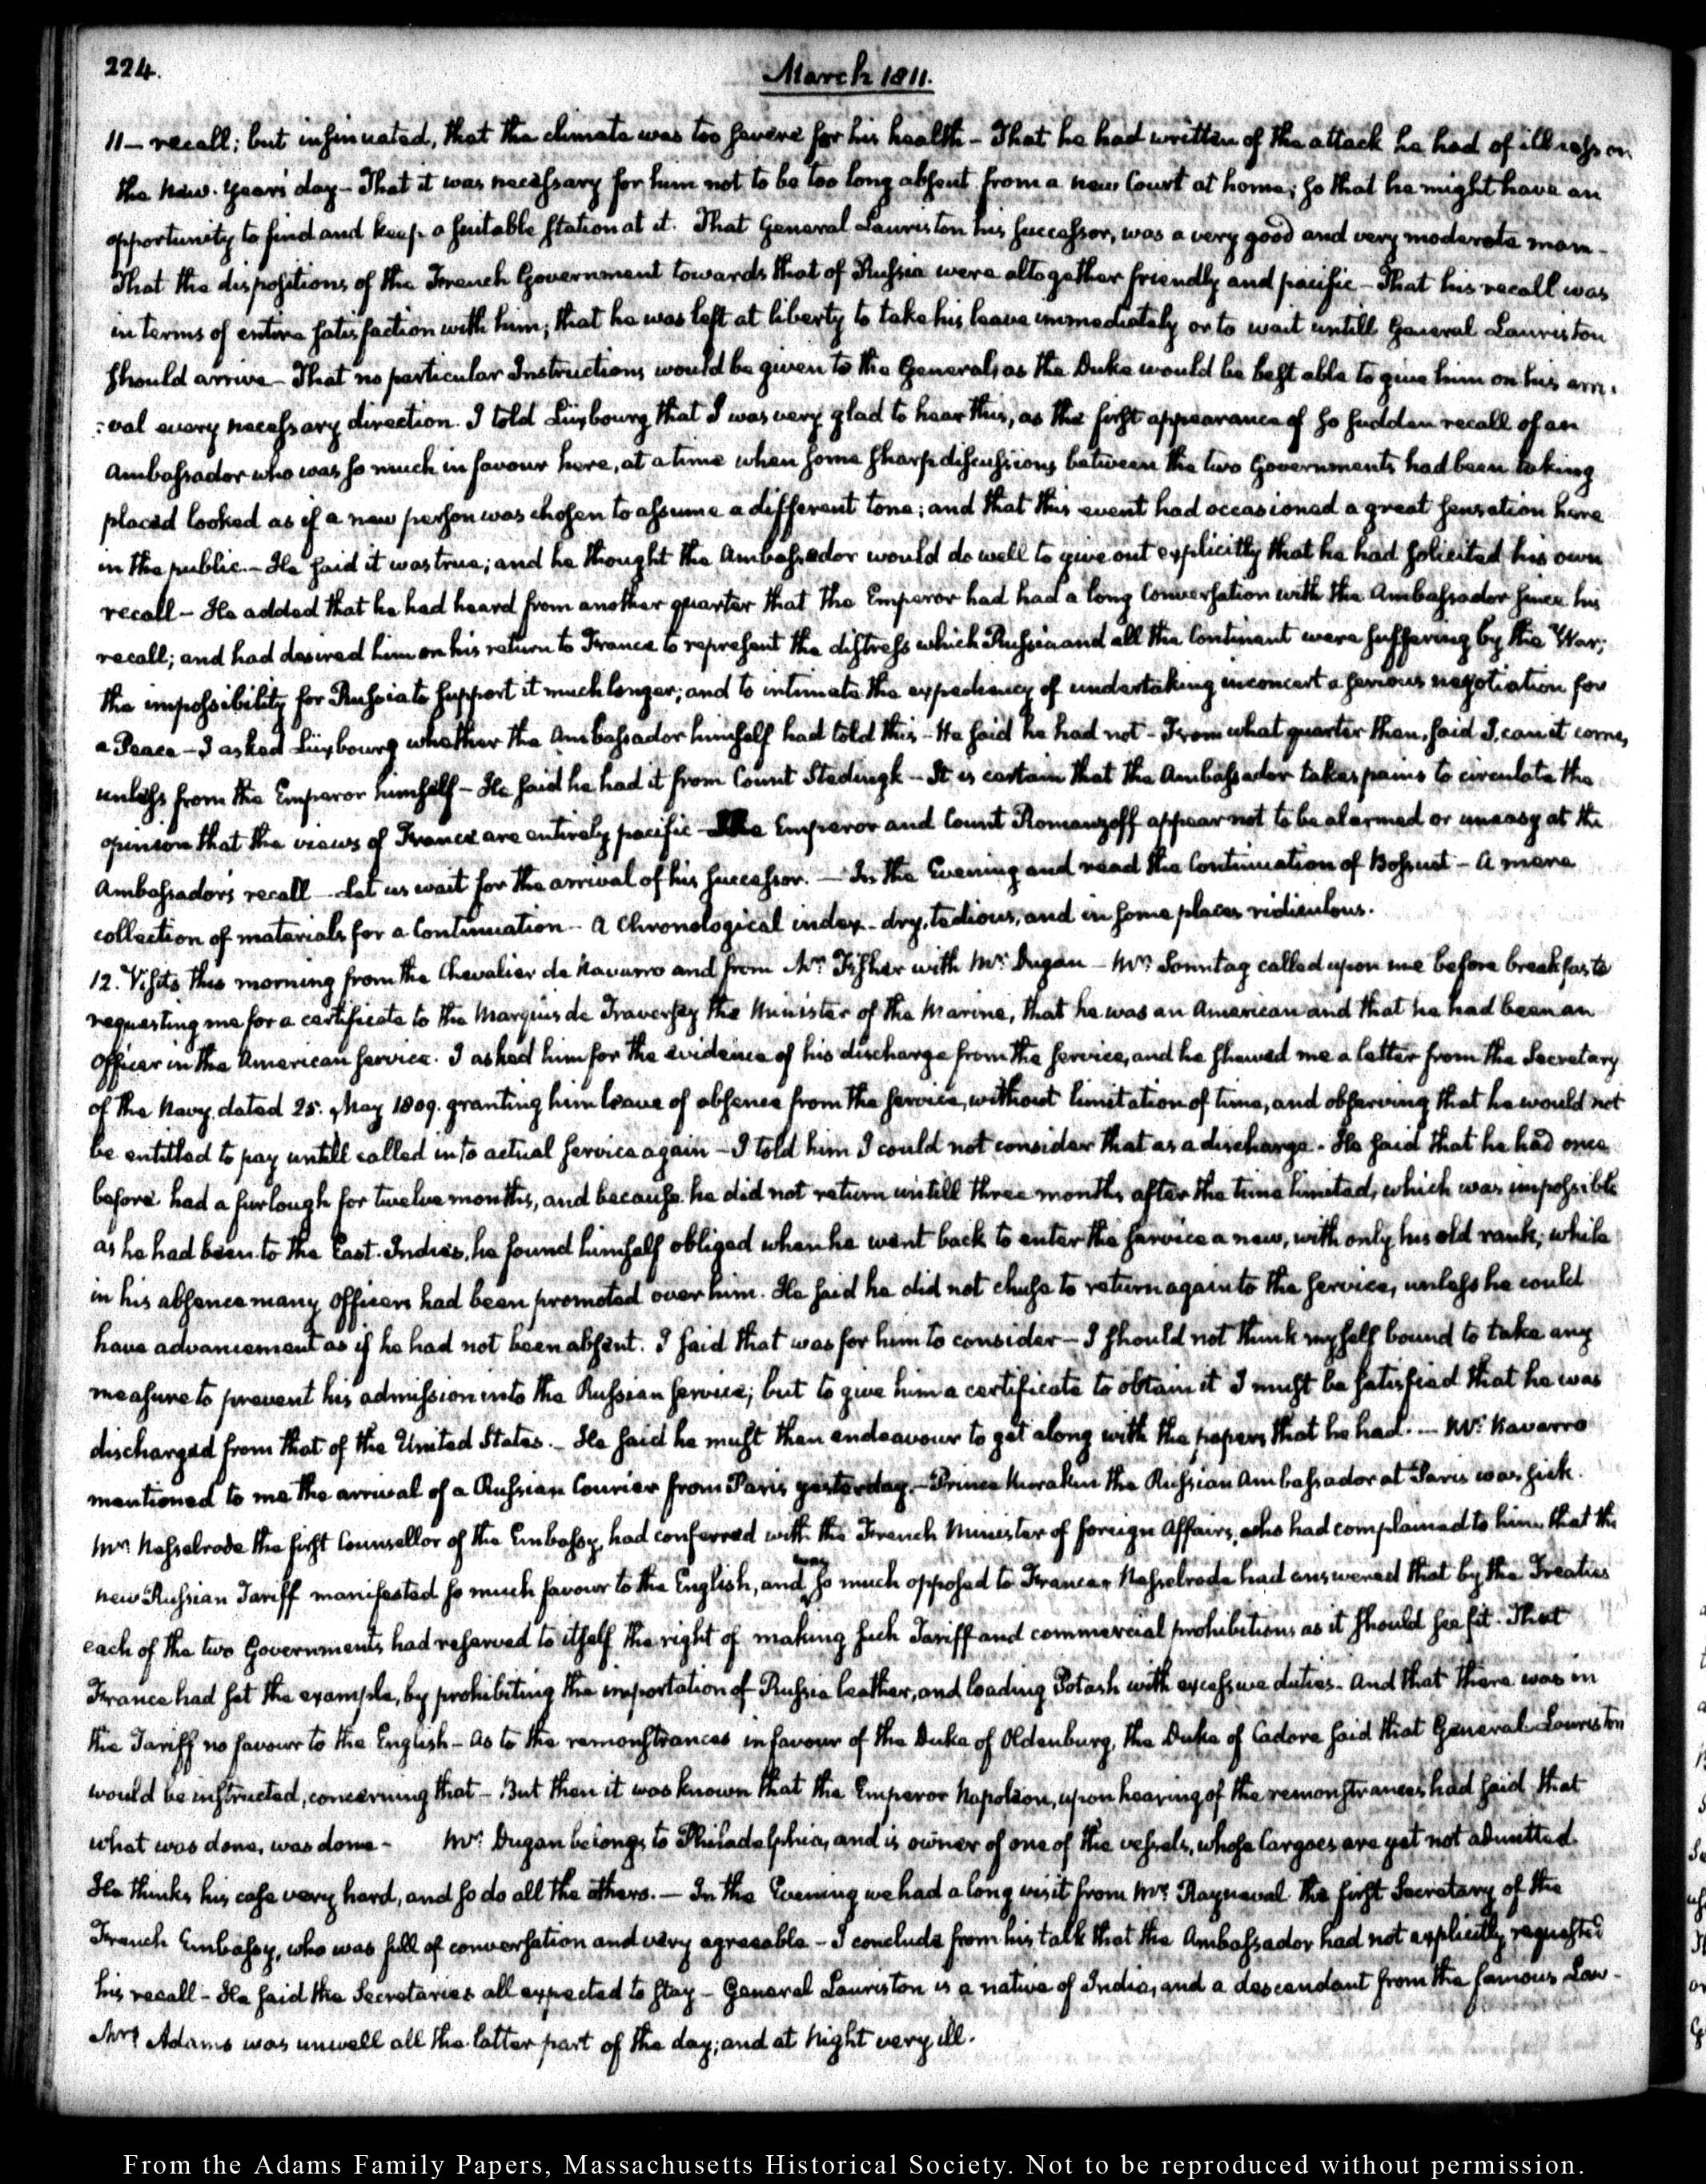 224.
March 1811.
11— recall; but insinuated, that the climate was too severe for his health – That he had written of the attack he had of illness on
the New-Year's day – That it was necessary for him not to be too long absent from a new Court at home; so that he might have an
opportunity to find and keep a suitable station at it. That General Lauriston his successor, was a very good and very moderate man –
That the dispositions of the French Government towards that of Russia were altogether friendly and pacific – That his recall was
in terms of entire satisfaction with him; that he was left at liberty to take his leave immediately or to wait untill General Lauriston
should arrive – That no particular Instructions would be given to the General, as the Duke would be best able to give him on his arri-
:val every necessary direction. I told Luxbourg that I was very glad to hear this, as the first appearance of so sudden recall of an
Ambassador who was so much in favour here, at a time when some sharp discussions between the two Governments had been taking
placed looked as if a new person was chosen to assume a different tone; and that this event had occasioned a great sensation here
in the public. – He said it was true; and he thought the Ambassador would do well to give out explicitly that he had solicited his own
recall – He added that he had heard from another quarter that the Emperor had had a long Conversation with the Ambassador since his
recall; and had desired him on his return to France to represent the distress which Russia and all the Continent were suffering by the War;
the impossibility for Russia to support it much longer; and to intimate the expediency of undertaking in concert a serious negotiation for
a Peace – I asked Luxbourg whether the Ambassador himself had told this – He said he had not – From what quarter then, said I, can it come,
unless from the Emperor himself – He said he had it from Count Stedingk – It is certain that the Ambassador takes pains to circulate the
opinion that the views of France are entirely pacific – The Emperor and Count Romanzoff appear not to be alarmed or uneasy at the
Ambassador's recall – Let us wait for the arrival of his successor. — In the Evening and read the Continuation of Bossuet – A mere
collection of materials for a Continuation – A Chronological index – dry, tedious, and in some places ridiculous.
12. Visits this morning from the Chevalier de Navarro and from Mr. Fisher with Mr. Dugan – Mr. Sonntag called upon me before breakfast
requesting me for a certificate to the Marquis de Traversey the Minister of the Marine, that he was an American and that he had been an
Officer in the American service. I asked him for the evidence of his discharge from the service, and he shewed me a letter from the Secretary
of the Navy, dated 25. May 1809. granting him leave of absence from the service, without limitation of time, and observing that he would not
be entitled to pay untill called into actual service again – I told him I could not consider that as a discharge – He said that he had once
before had a furlough for twelve months, and because he did not return untill three months after the time limited, which was impossible
as he had been to the East-Indies, he found himself obliged when he went back to enter the service a new, with only his old rank; while
in his absence many Officers had been promoted over him. He said he did not chuse to return again to the service, unless he could
have advancement as if he had not been absent. I said that was for him to consider – I should not think myself bound to take any
measure to prevent his admission into the Russian service; but to give him a certificate to obtain it I must be satisfied that he was
discharged from that of the United States. – He said he must then endeavour to get along with the papers that he had. — Mr. Navarro
mentioned to me the arrival of a Russian Courier from Paris yesterday. – Prince Kurakin the Russian Ambassador at Paris was sick.
Mr. Nesselrode the first Counsellor of the Embassy, had conferred with the French Minister of foreign Affairs, who had complained to him that the
new Russian Tariff manifested so much favour to the English, and was so much opposed to France. Nesselrode had answered that by the Treaties
each of the two Governments had reserved to itself the right of making such Tariff and commercial prohibitions as it should see fit. That
France had set the example, by prohibiting the importation of Russia leather, and loading Potash with excessive duties – And that there was in
the Tariff no favour to the English – As to the remonstrances in favour of the Duke of Oldenburg, the Duke of Cadore said that General Lauriston
would be instructed, concerning that – But then it was known that the Emperor Napoleon, upon hearing of the remonstrances had said that
what was done, was done – Mr. Dugan belongs to Philadelphia, and is owner of one of the vessels, whose Cargoes are yet not admitted.
He thinks his case very hard, and so do all the others. — In the Evening we had a long visit from Mr. Rayneval the first Secretary of the
French Embassy, who was full of conversation and very agreeable – I conclude from his talk that the Ambassador had not explicitly requested
his recall – He said the Secretaries all expected to stay – General Lauriston is a native of India, and a descendant from the famous Law –
Mrs. Adams was unwell all the latter part of the day; and at Night very ill.
From the Adams Family Papers, Massachusetts Historical Society. Not to be reproduced without permission.